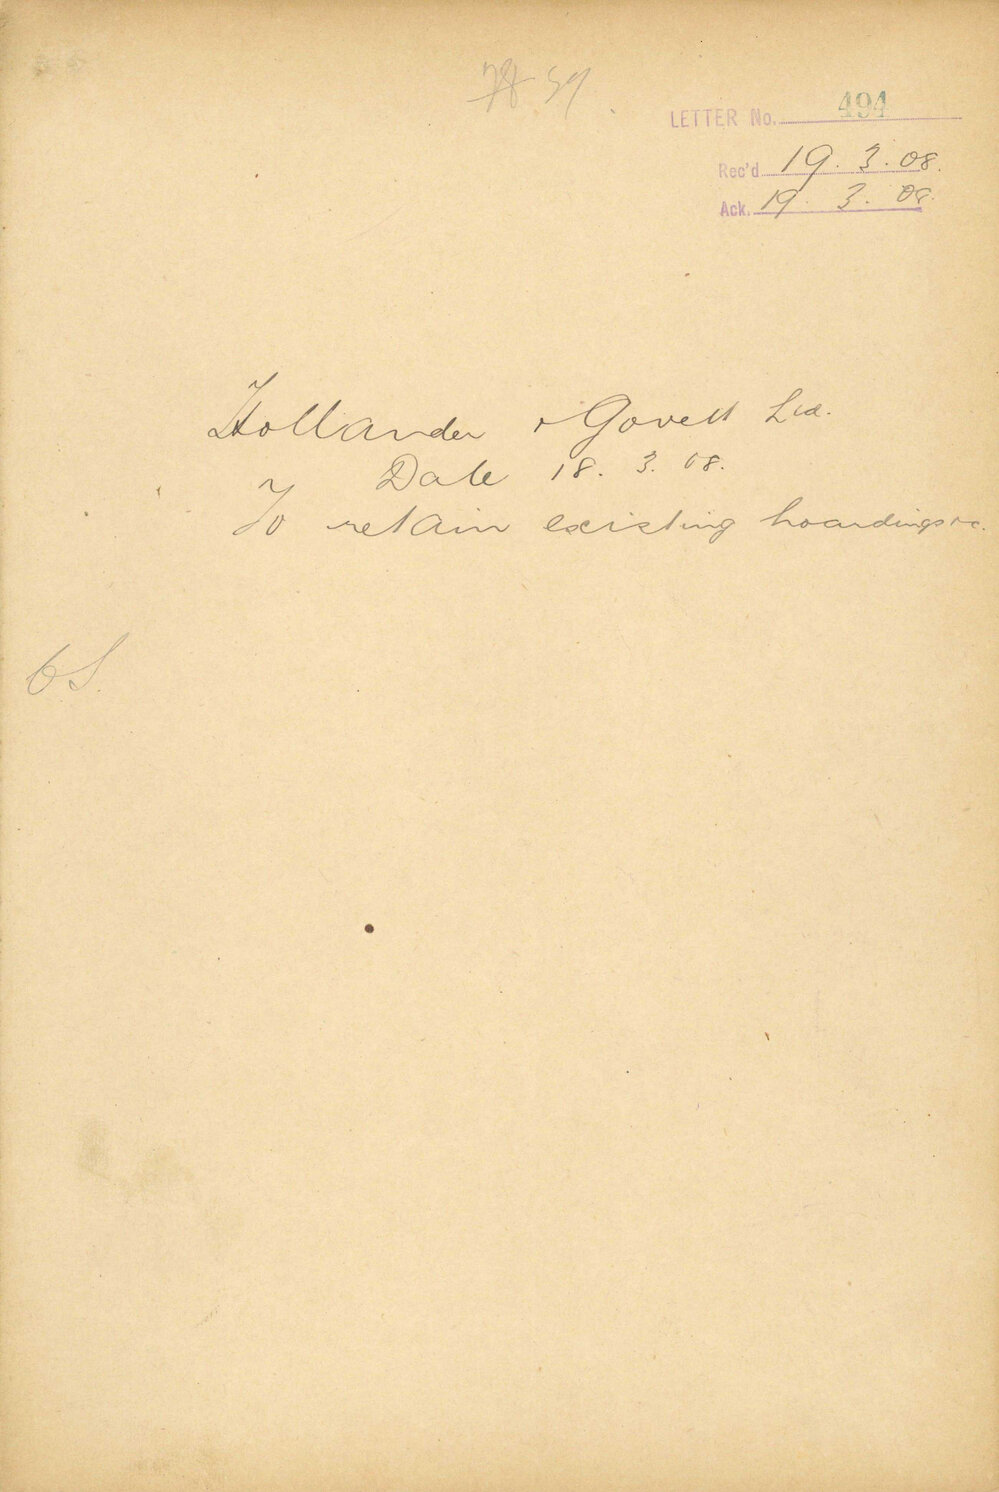 LETTER No. 494
Rec'd 19. 3. 08.
Ack. 19. 3. 08.
Hollander & Govett Ltd.
Date 18. 3. 08.
To retain existing hoardings &c.